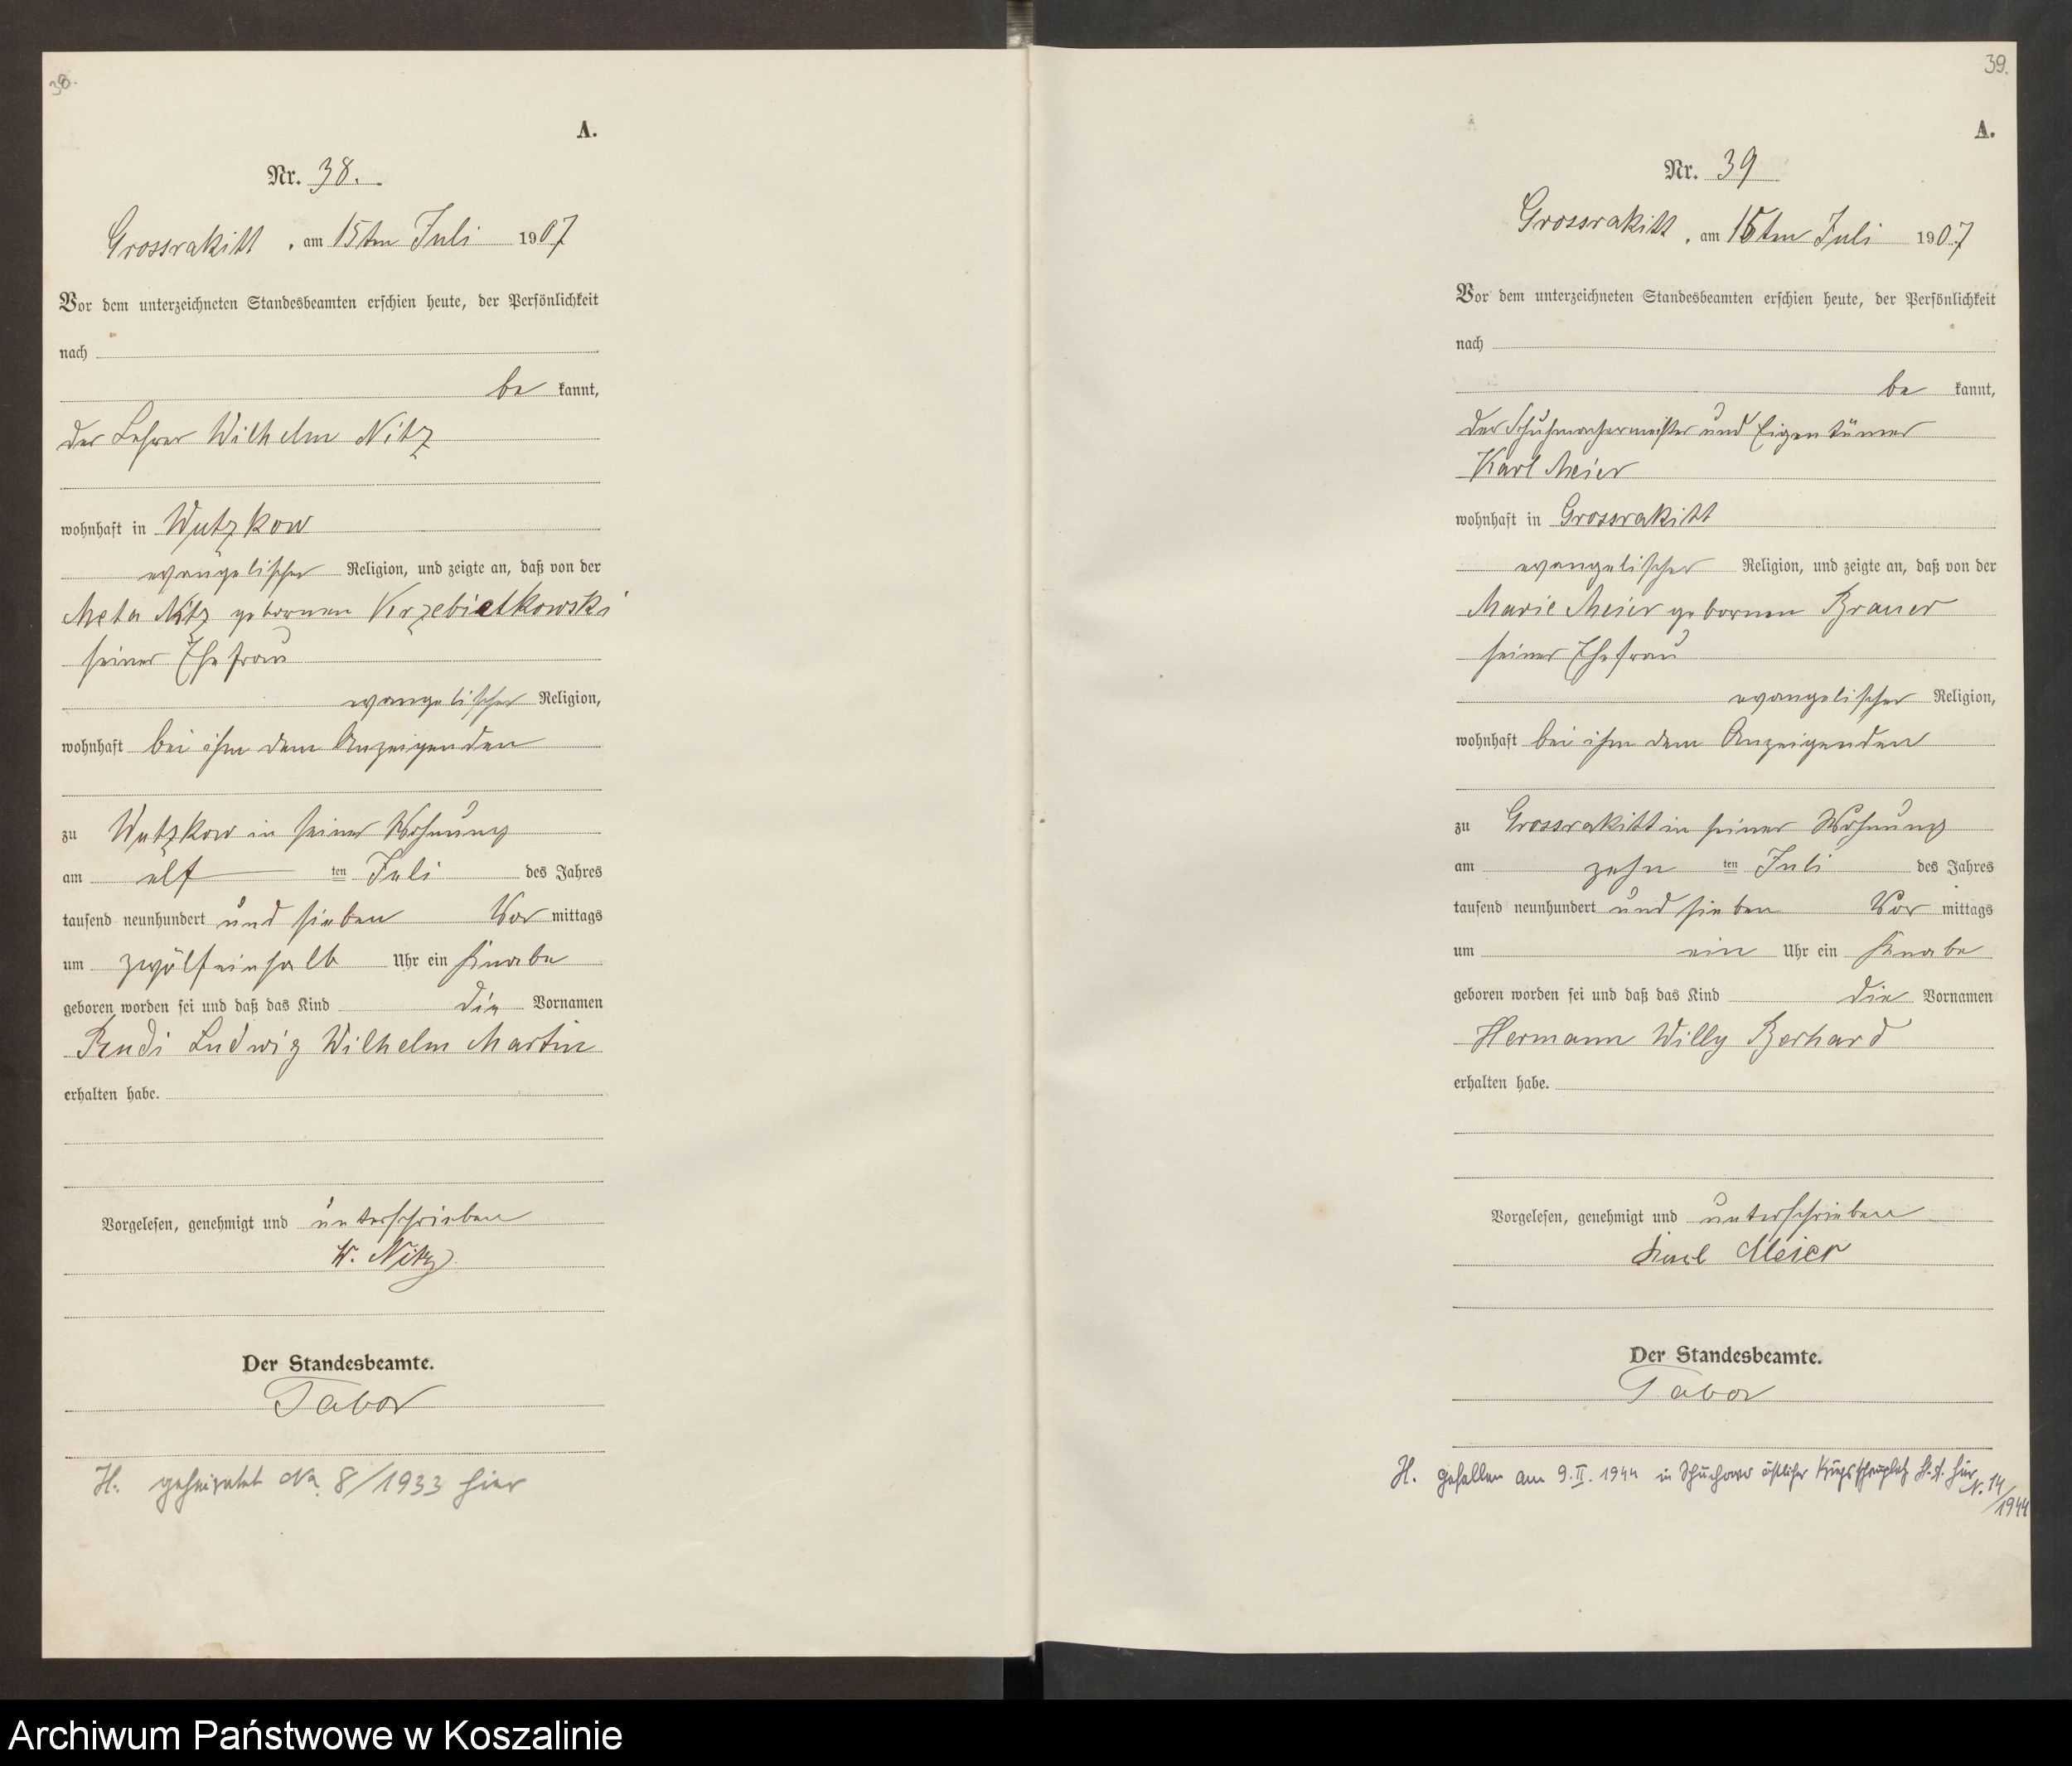 38.
A.
Nr. 38.
Grossrakitt, am 15ten Juli 1907
Vor dem unterzeichneten Standesbeamten erschien heute, der Persönlichkeit
nach
be kannt,
der Lehrer Wilhelm Nitz
wohnhaft in Wutzkow
evangelischer Religion, und zeigte an, daß von der
Meta Nitz gebornen Krzebietkowski
seiner Ehefrau
evangelischer Religion,
wohnhaft bei ihm dem Anzeigenden
zu Wutzkow in seiner Wohnung
am elf ten Juli des Jahres
tausend neunhundert und sieben Vor mittags
um zwölfeinhalb Uhr ein Knabe
geboren worden sei und daß das Kind die Vornamen
Rudi Ludwig Wilhelm Martin
erhalten habe.
Vorgelesen, genehmigt und unterschrieben
W. Nitz
Der Standesbeamte.
Tabor
H. geheiratet No. 8/1933 hier
39.
A.
Nr. 39
Grossrakitt, am 15ten Juli 1907
Vor dem unterzeichneten Standesbeamten erschien heute, der Persönlichkeit
nach
be kannt,
der Schuhmachermeister und Eigentümer
Karl Meier
wohnhaft in Grossrakitt
evangelischer Religion, und zeigte an, daß von der
Marie Meier gebornen Brauer
seiner Ehefrau
evangelischer Religion,
wohnhaft bei ihm dem Anzeigenden
zu Grossrakitt in seiner Wohnung
am zehn ten Juli des Jahres
tausend neunhundert und sieben Vor mittags
um ein Uhr ein Knabe
geboren worden sei und daß das Kind die Vornamen
Hermann Willy Berhard
erhalten habe.
Vorgelesen, genehmigt und unterschrieben
Karl Meier
Der Standesbeamte.
Tabor
H. gefallen am 9.II.1944 in Schuchowo östlicher Kriegsschauplatz hier
N. 14/1944
Archiwum Państwowe w Koszalinie